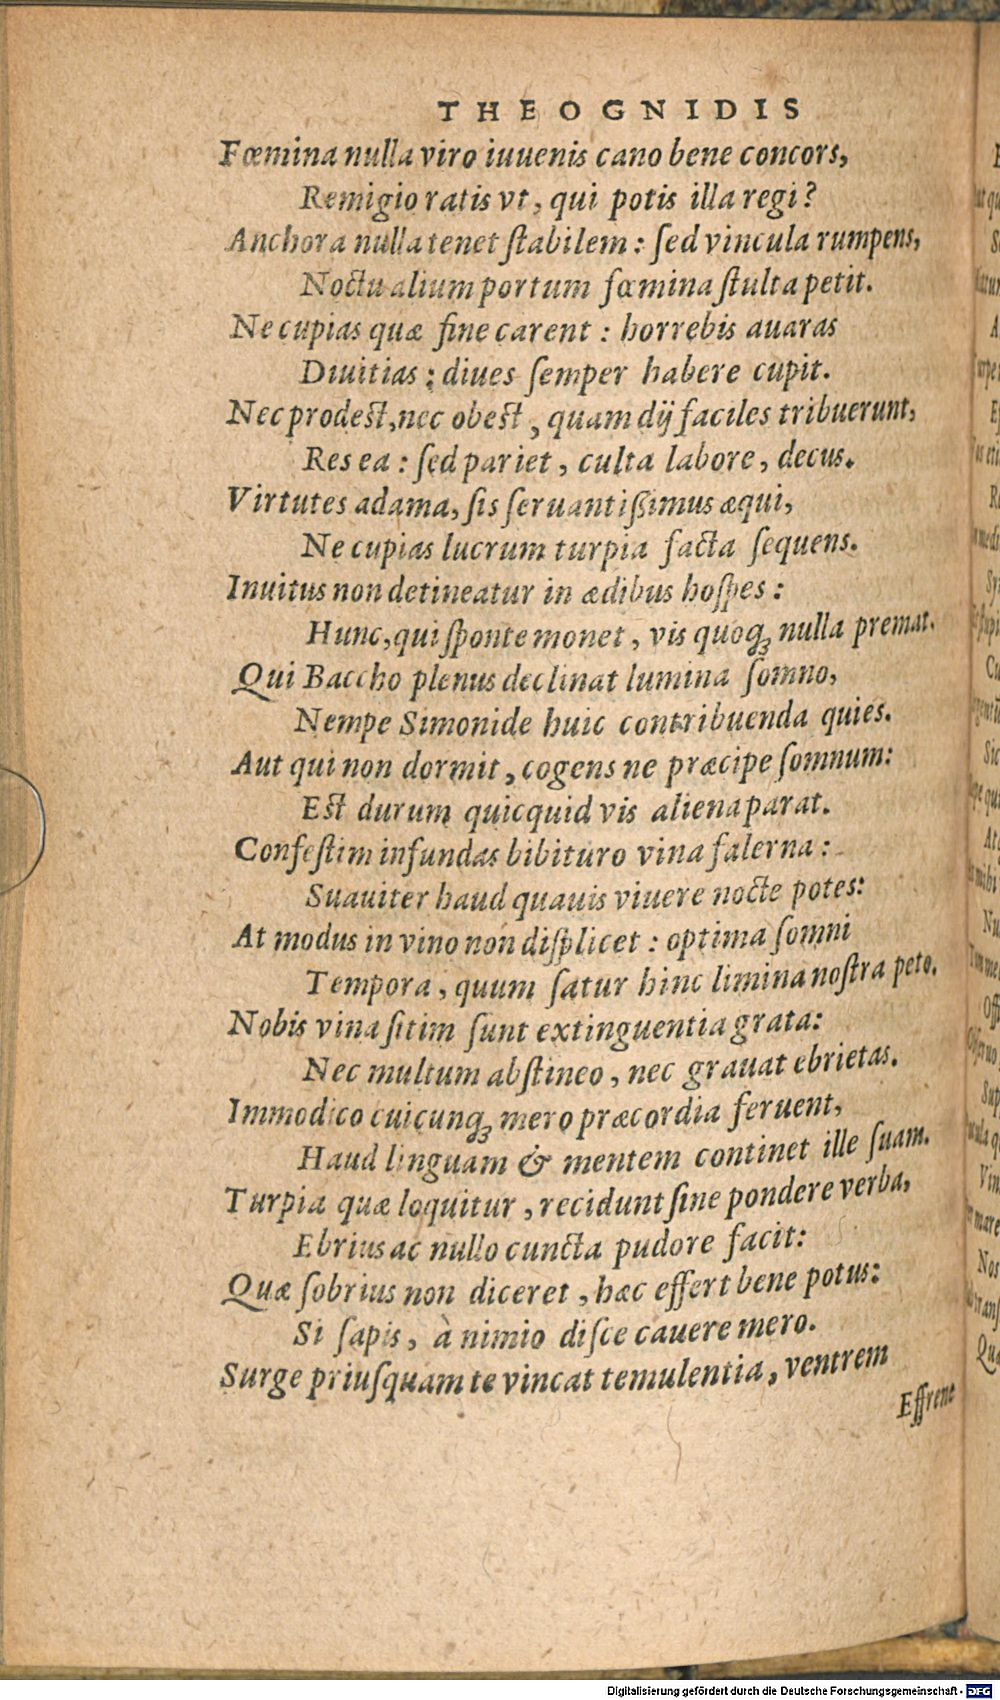 THEOGNIDIS
Fœmina nulla viro iuuenis cano bene concors,
Remigio ratis vt, qui potis illa regi?
Anchora nulla tenet ſtabilem: ſed vincula rumpens,
Noctu alium portum fœmina ſtulta petit.
Ne cupias quæ fine carent: horrebis auaras
Diuitias: diues ſemper habere cupit.
Nec prodeſt, nec obeſt, quam dij faciles tribuerunt,
Res ea: ſed pariet, culta labore, decus.
Virtutes adama, ſis ſeruantißimus æqui,
Ne cupias lucrum turpia facta ſequens.
Inuitus non detineatur in ædibus hoſpes:
Hunc, qui ſponte monet, vis quoqꝫ nulla premat.
Qui Baccho plenus declinat lumina ſomno,
Nempe Simonide huic contribuenda quies.
Aut qui non dormit, cogens ne præcipe ſomnum:
Eſt durum quicquid vis aliena parat.
Confeſtim infundas bibituro vina falerna:
Suauiter haud quauis viuere nocte potes:
At modus in vino non diſplicet: optima ſomni
Tempora, quum ſatur hinc limina noſtra peto.
Nobis vina ſitim ſunt extinguentia grata:
Nec multum abſtineo, nec grauat ebrietas.
Immodico cuicunqꝫ mero præcordia feruent,
Haud linguam & mentem continet ille ſuam.
Turpia quæ loquitur, recidunt ſine pondere verba,
Ebrius ac nullo cuncta pudore facit:
Quæ ſobrius non diceret, hæc effert bene potus:
Si ſapis, à nimio diſce cauere mero.
Surge priuſquam te vincat temulentia, ventrem
Effrene
Digitalisierung gefördert durch die Deutsche Forschungsgemeinschaft - DFG